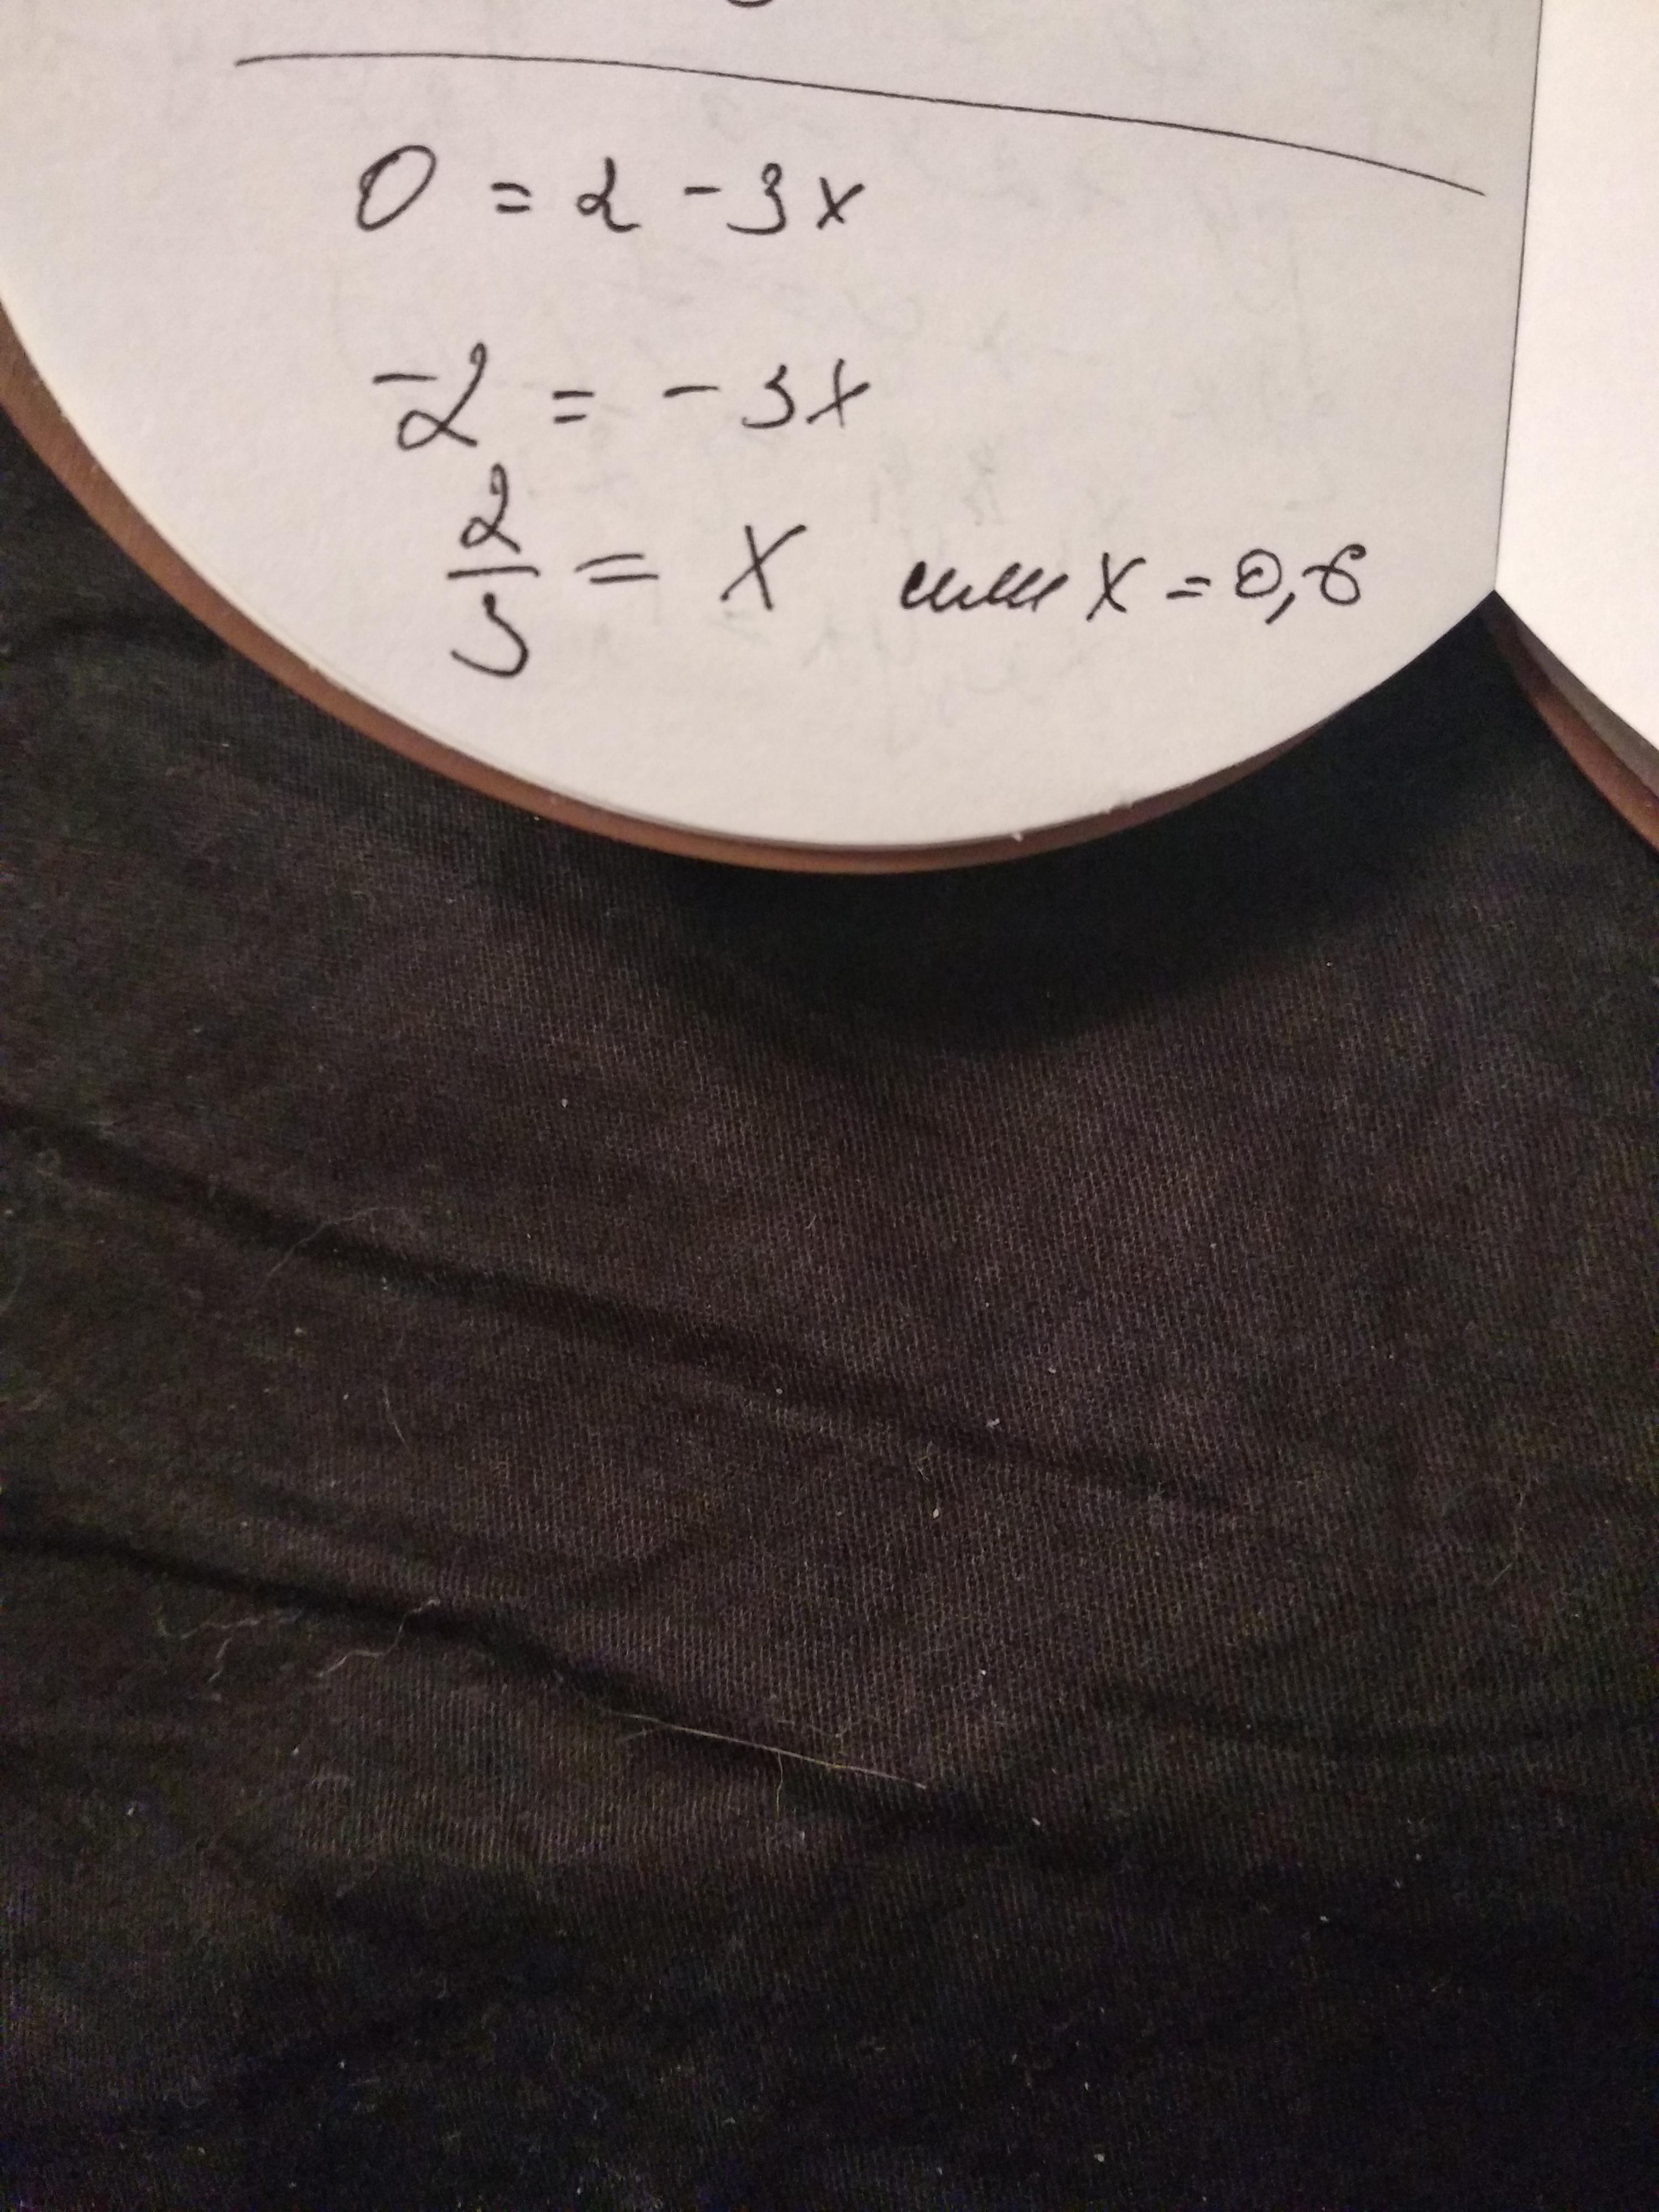 0 = 2 - 3x
-2 = -3x
2/3 = x или x = 0,6